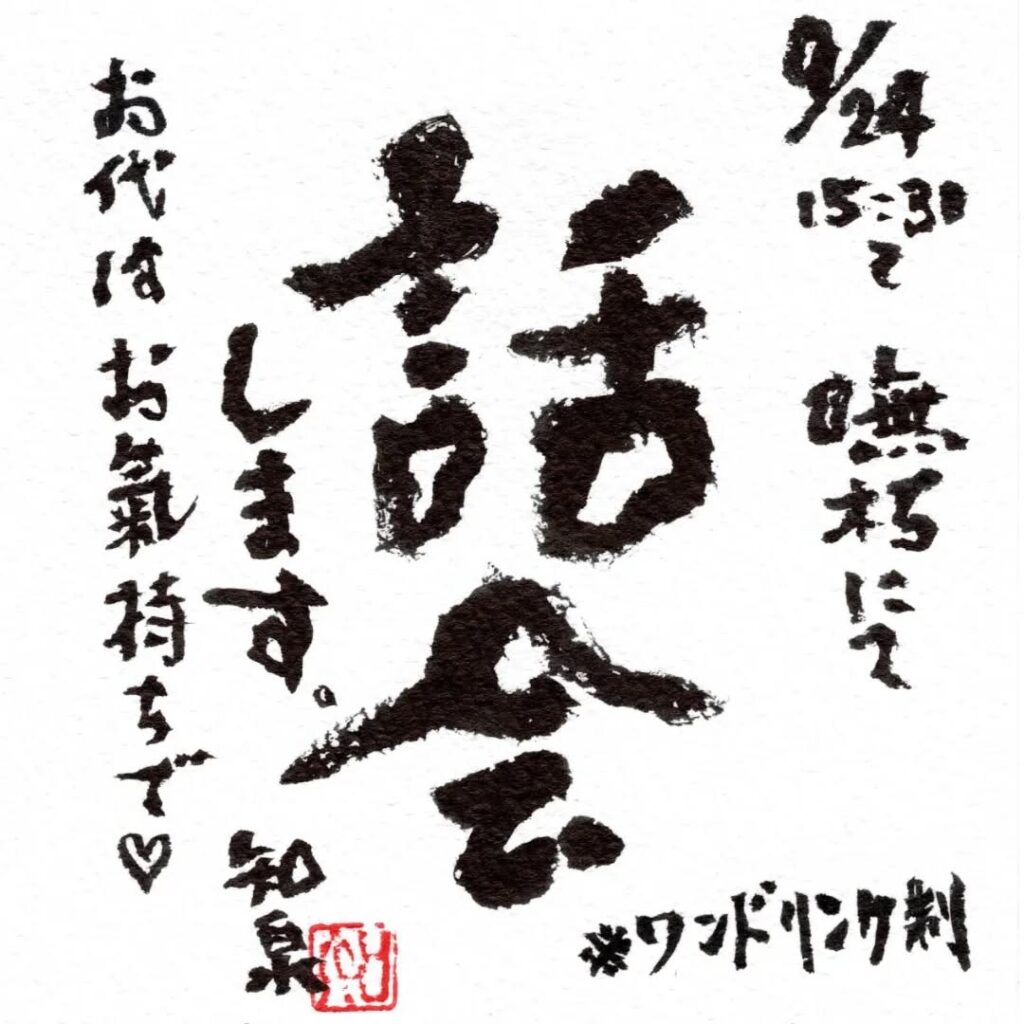 9/24
15:30〜
朽にて
話会
します。
お代はお氣持ちで♡
知泉
※ワンドリンク制